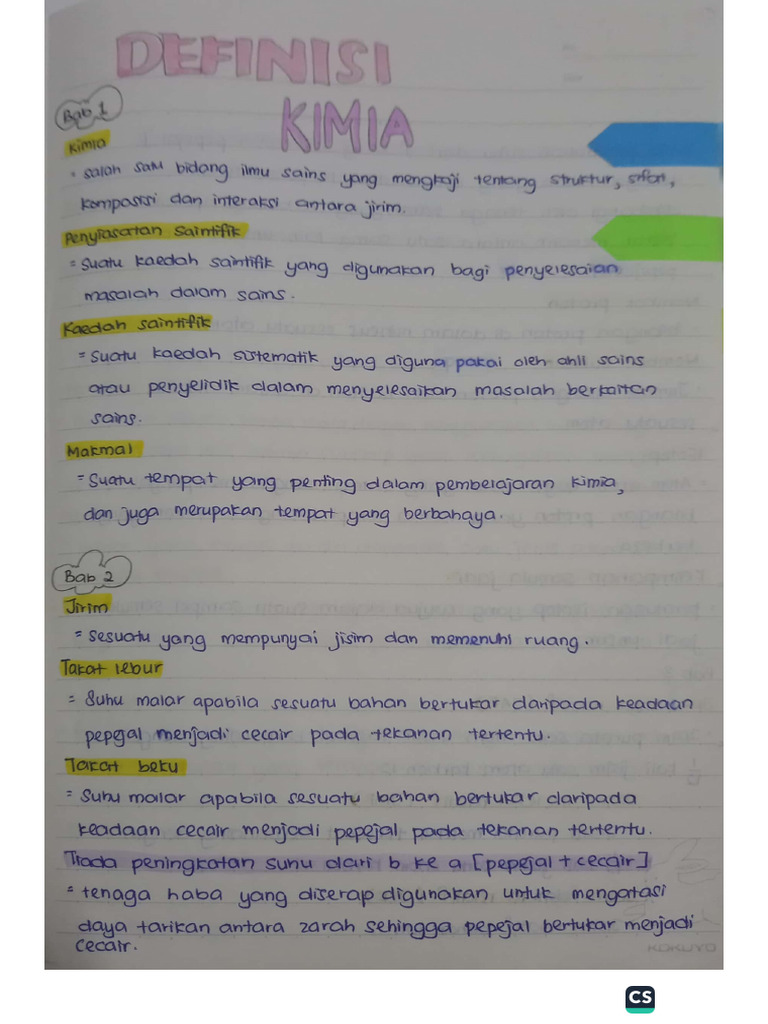 DEFINISI
KIMIA
Bab 1
Kimia
= salah satu bidang ilmu sains yang mengkaji tentang struktur, sifat,
komposisi dan interaksi antara jirim.
Penyiasatan Saintifik
= Suatu kaedah saintifik yang digunakan bagi penyelesaian
masalah dalam sains.
Kaedah saintifik
= Suatu kaedah sistematik yang diguna pakai oleh ahli sains
atau penyelidik dalam menyelesaikan masalah berkaitan
sains.
Makmal
= Suatu tempat yang penting dalam pembelajaran kimia,
dan juga merupakan tempat yang berbahaya.
Bab 2
Jirim
= Sesuatu yang mempunyai jisim dan memenuhi ruang.
Takat lebur
= Suhu malar apabila sesuatu bahan bertukar daripada keadaan
pepejal menjadi cecair pada tekanan tertentu.
Takat beku
= Suhu malar apabila sesuatu bahan bertukar daripada
keadaan cecair menjadi pepejal pada tekanan tertentu.
Tiada peningkatan suhu dari b ke a [pepejal + cecair]
= tenaga haba yang diserap digunakan untuk mengatasi
daya tarikan antara zarah sehingga pepejal bertukar menjadi
cecair.
KOKUYO
CS